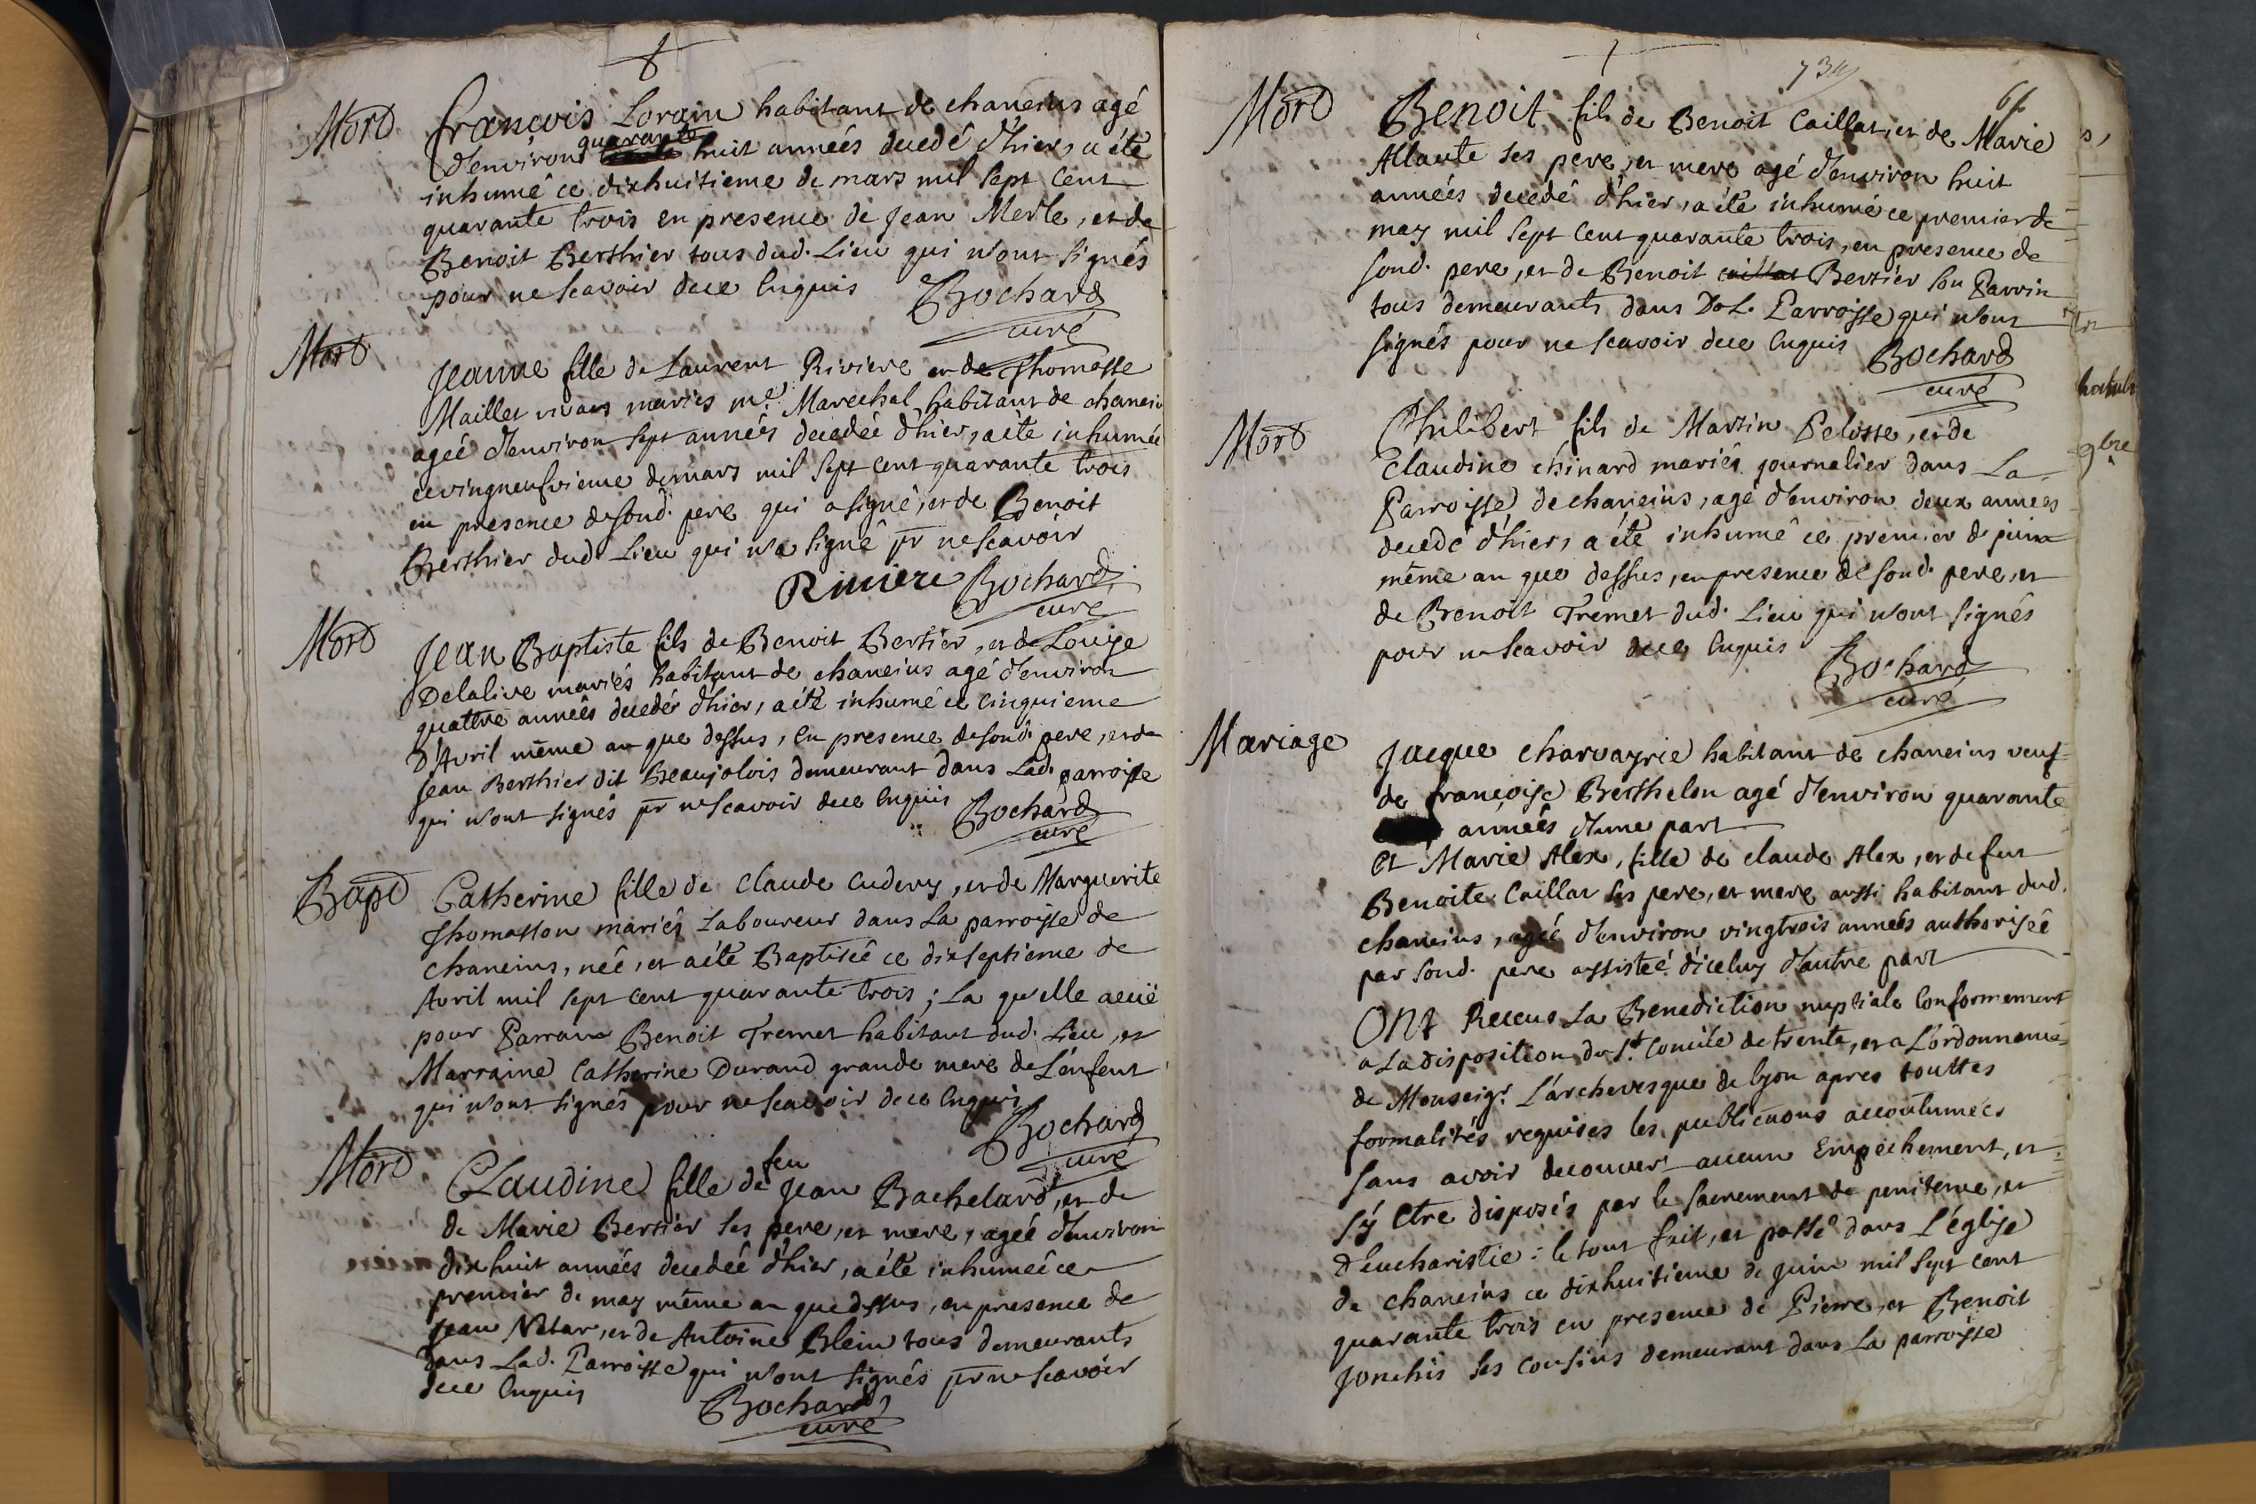 Mord
françois Lorain habitant de chaneins agé
d'environ quarante huit années decedé d'hier, a été
inhumé ce dixhuitieme de mars mil sept cent
quarante trois en presence de Jean Merle, et de
Benoit Berthier tous dud. Lieu qui n'ont signés
pour ne scavoir dece Enquis
Bochard
curé
Mord
Jeanne fille de Laurent Riviere et de Thomasse
Maillet vivans mariés me. Marechal habitant de chanein
ageé d'environ sept années decedée d'hier, a été inhumée
ce vingneufvieme de mars mil sept cent quarante trois
en presence de sond. pere qui a signé, et de Benoit
Berthier dud. Lieu qui n'a signé pr ne scavoir
Riviere Bochard
curé
Mord
Jean Baptiste fils de Benoit Bertier, et de Louise
Delalive mariés habitant de chaneins agé d'environ
quattre années decedé d'hier, a été inhumé ce cinquieme
d'Avril même an que dessus, en presence de sond. pere, et de
Jean Berthier dit Beaujolois demeurant dans Lad. parroisse
qui n'ont signés pr ne scavoir dece Enquis
Bochard
curé
Bapt
Catherine fille de Claude Cudery, et de Marguerite
Thomasson mariés Laboureur dans La parroisse de
chaneins, néé, et a été Baptiséé ce dixseptieme de
Avril mil sept cent quarante trois; La qu'elle a eüe
pour Parrain Benoit Tremet habitant dud. Lieu, et
Marraine Catherine Durand grande mere de L'enfent
qui n'ont signés pour ne scavoir dece Enquis
Bochard
curé
Mord
Claudine fille de feu Jean Bachelard, et de
de Marie Bertier ses pere, et mere, ageé d'environ
dixhuit années decedéé d'hier, a été inhumeé ce
premier de may même an que dessus, en presence de
Jean Natar, et de Antoine Blein tous demeurants
dans Lad. Parroisse qui n'ont signés pr ne scavoir
dece Enquis
Bochard
curé
734
Mord
Benoit fils de Benoit Caillat, et de Marie
Allante ses pere, et mere agé d'environ huit
années decedé d'hier, a été inhumé ce premier de
may mil sept cent quarante trois, en presence de
sond. pere, et de Benoit caillat Bertier son Parrin
tous demeurants dans Parroisse qui n'ont
signés pour ne scavoir dece Enquis
Bochard
curé
Mord
Philibert fils de Martin Pelosse, et de
Claudine chinard mariés journalier dans La
Parroisse de chaneins, agé d'environ deux années
decedé d'hier, a été inhumé ce premier de juin
même an que dessus, en presence de sond. pere, et
de Benoit Tremet dud. Lieu qui n'ont signés
pour ne scavoir dece Enquis
Bochard
curé
Mariage
Jacque charvayrie habitant de chaneins veuf
de françoise Berthelon agé d'environ quarante
années d'une part
Et Marie Alex, fille de claude Alex, et de fut
Benoite Caillat ses pere, et mere aussi habitant dud.
chaneins, ageé d'environ vingtrois années authoriseé
par sond. pere assisteé d'iceluy d'autre part
ONt Receus La Benediction nuptiale Conformement
a La disposition du St. Concile de trente, et a L'ordonnance
de Monseigr. L'archevesque de lyon apres touttes
formalités requises les publications accoutumées
sans avoir decouvert aucun Empechement, et
s'ÿ Etre disposés par le sacrement de penitence, et
d'eucharistie: le tout fait, et passé dans L'église
de chaneins ce dixhuitieme de juin mil sept cent
quarante trois en presence de Pierre, et Benoit
Jonchis ses cousins demeurant dans La parroisse